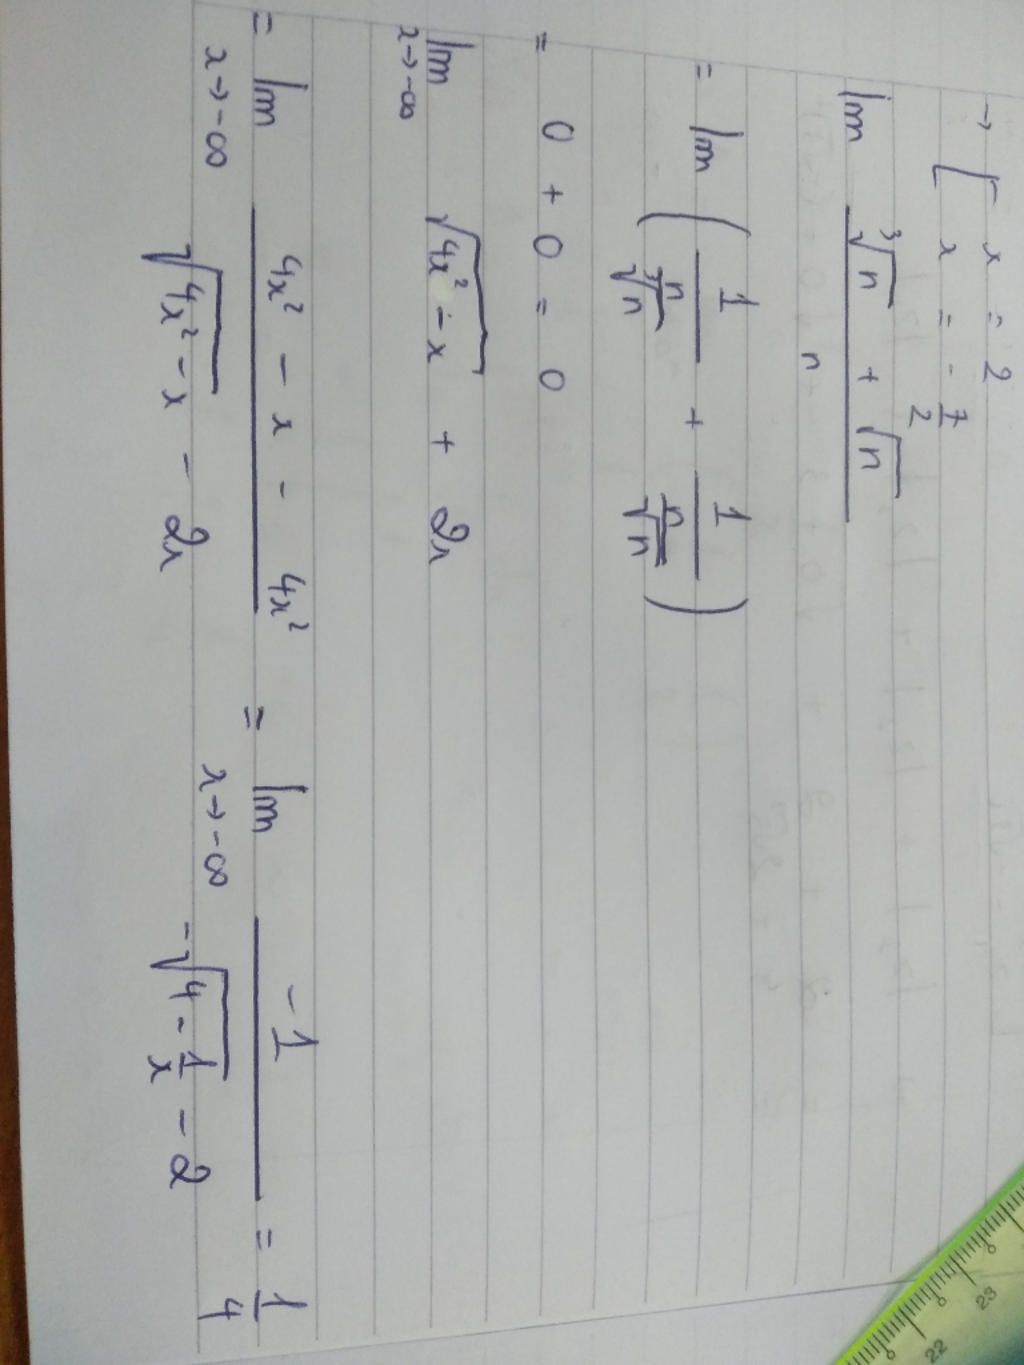 → [ x = 2
x = - 7/2
lim (∛n + √n)/n
= lim ( 1/(n/∛n) + 1/(n/√n) )
= 0 + 0 = 0
lim x→-∞ √(4x² - x) + 2x
= lim x→-∞ (4x² - x - 4x²)/(√(4x² - x) - 2x) = lim x→-∞ -1/(-√(4 - 1/x) - 2) = 1/4
23
22